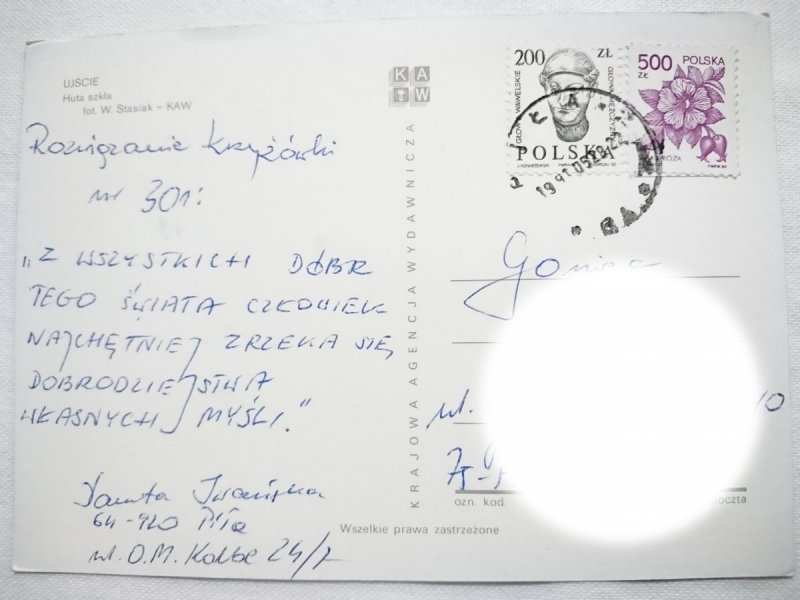 UJŚCIE
Huta szkła
fot. W. Stasiak – KAW
KAW
Rozwiązanie krzyżówki
nr 301:
„Z WSZYSTKICH DÓBR
TEGO ŚWIATA CZŁOWIEK
NAJCHĘTNIEJ ZRZEKA SIĘ
DOBRODZIEJSTWA
WŁASNYCH MYŚLI."
Danuta
64-920 Piła
ul. O.M. Kolbe 24/7
KRAJOWA AGENCJA WYDAWNICZA
Wszelkie prawa zastrzeżone
200 ZŁ
GŁOWY WAWELSKIE
GŁOWA MĘŻCZYZNY
POLSKA
500 ZŁ
POLSKA
RÓŻA
PIŁA
Goniec
ul. 10
75-
ozn. kod
poczta